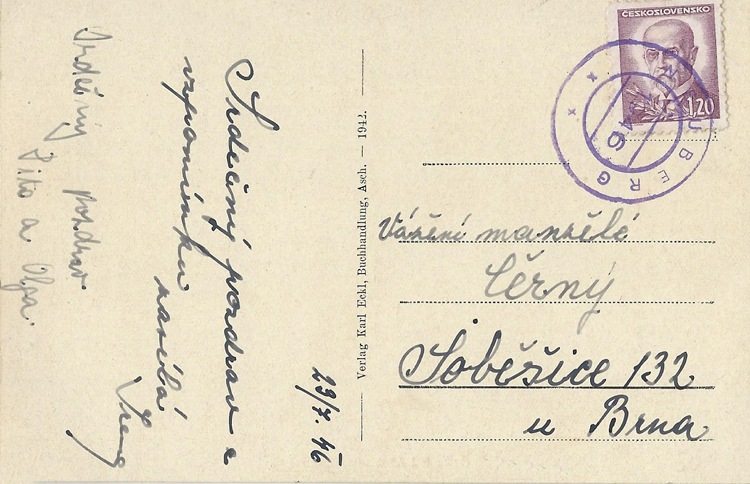 Srdečný pozdrav a
vzpomínku zasílá
Irena
Srdečný pozdrav
a Olga.
29/7. 46
Verlag Karl Eckl, Buchhandlung, Asch. — 1942.
ČESKOSLOVENSKO
1,20
NEUBERG
Vážení manželé
Černý
Soběšice 132
u Brna